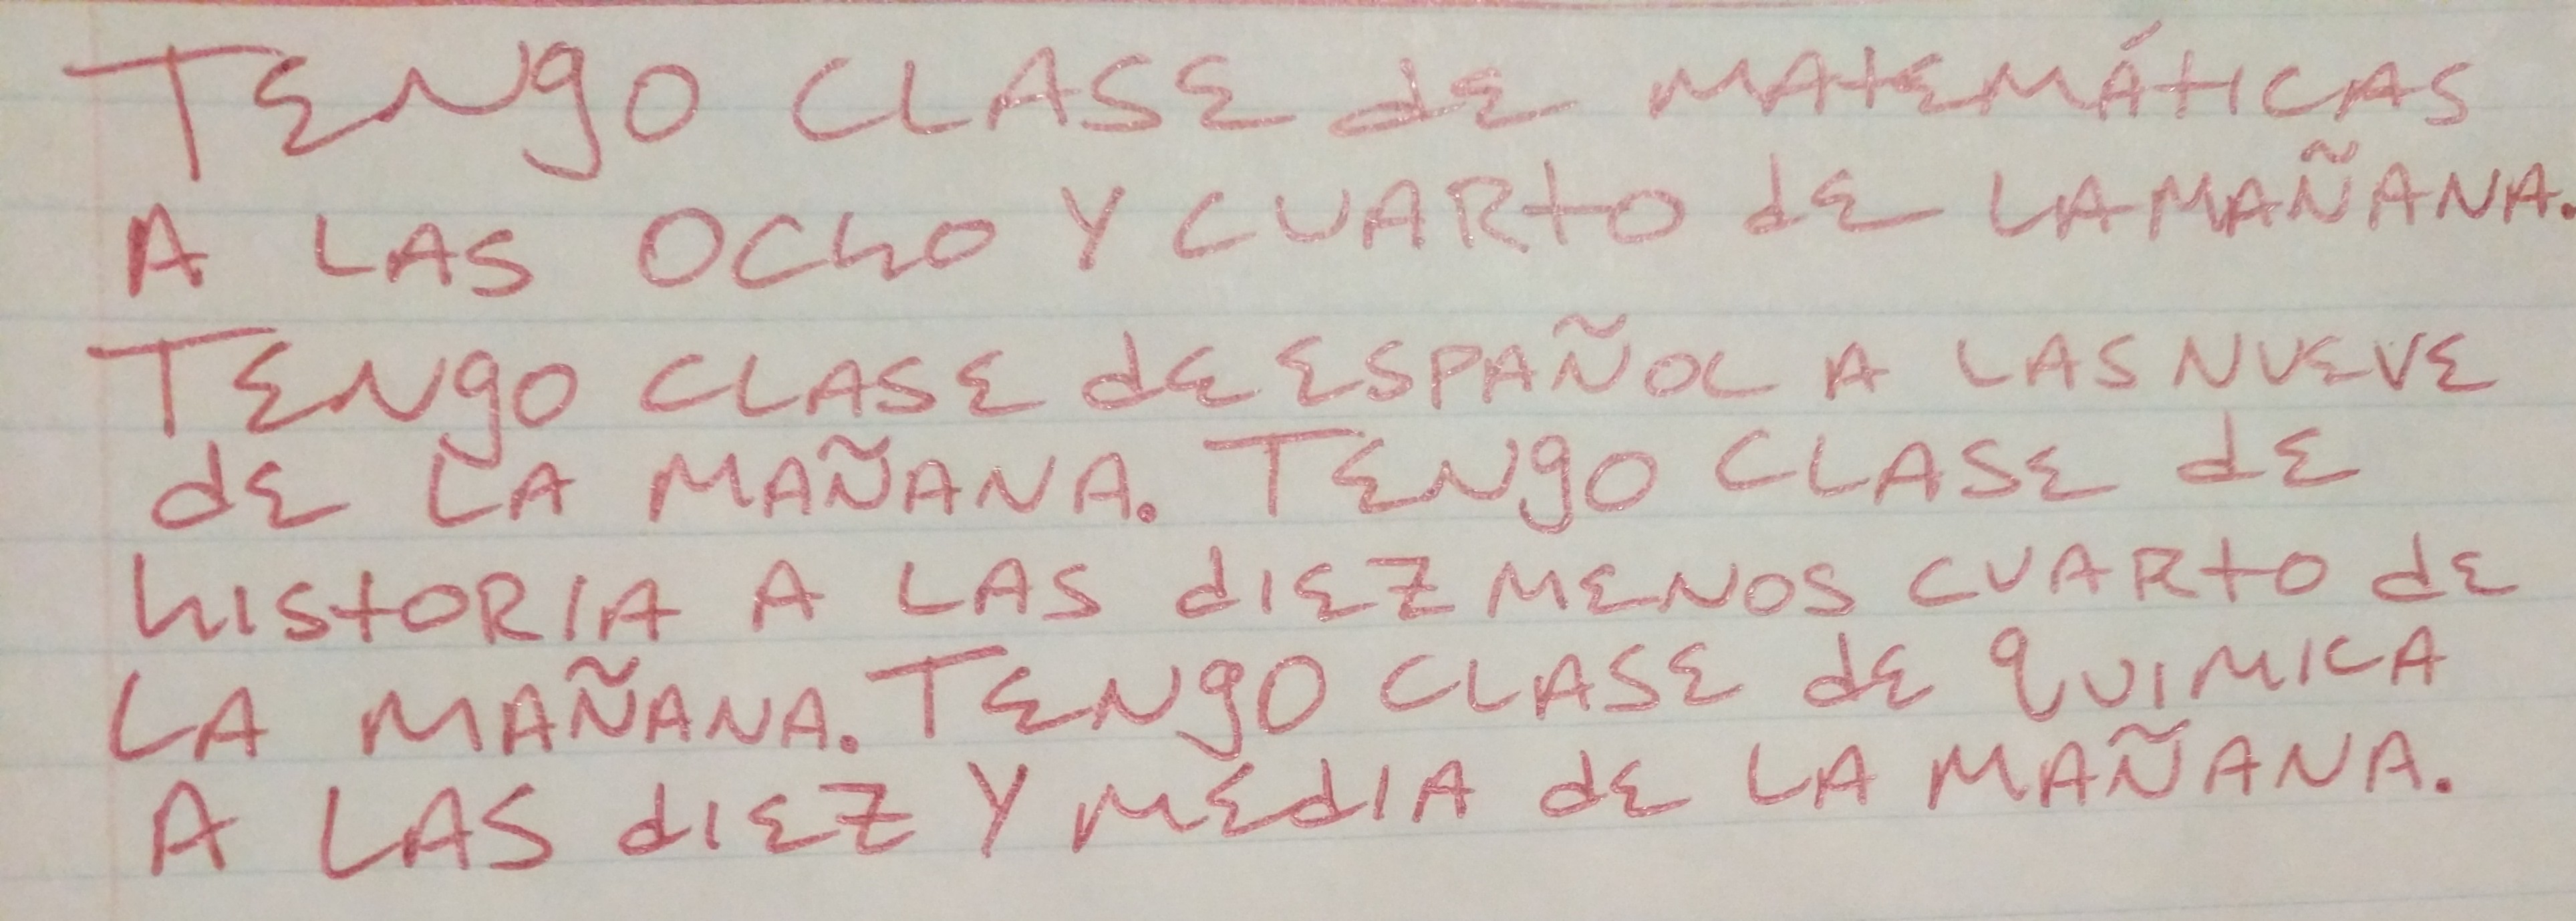 TENgO CLASE dE MATEMÁTICAS
A LAS OChO Y CUARTO dE LA MAÑANA.
TENgO CLASE dE ESPAÑOL A LAS NUEVE
dE LA MAÑANA. TENgO CLASE dE
hISTORIA A LAS dIEZ MENOS CUARTO dE
LA MAÑANA. TENgO CLASE dE qUIMICA
A LAS dIEZ Y MEdIA dE LA MAÑANA.